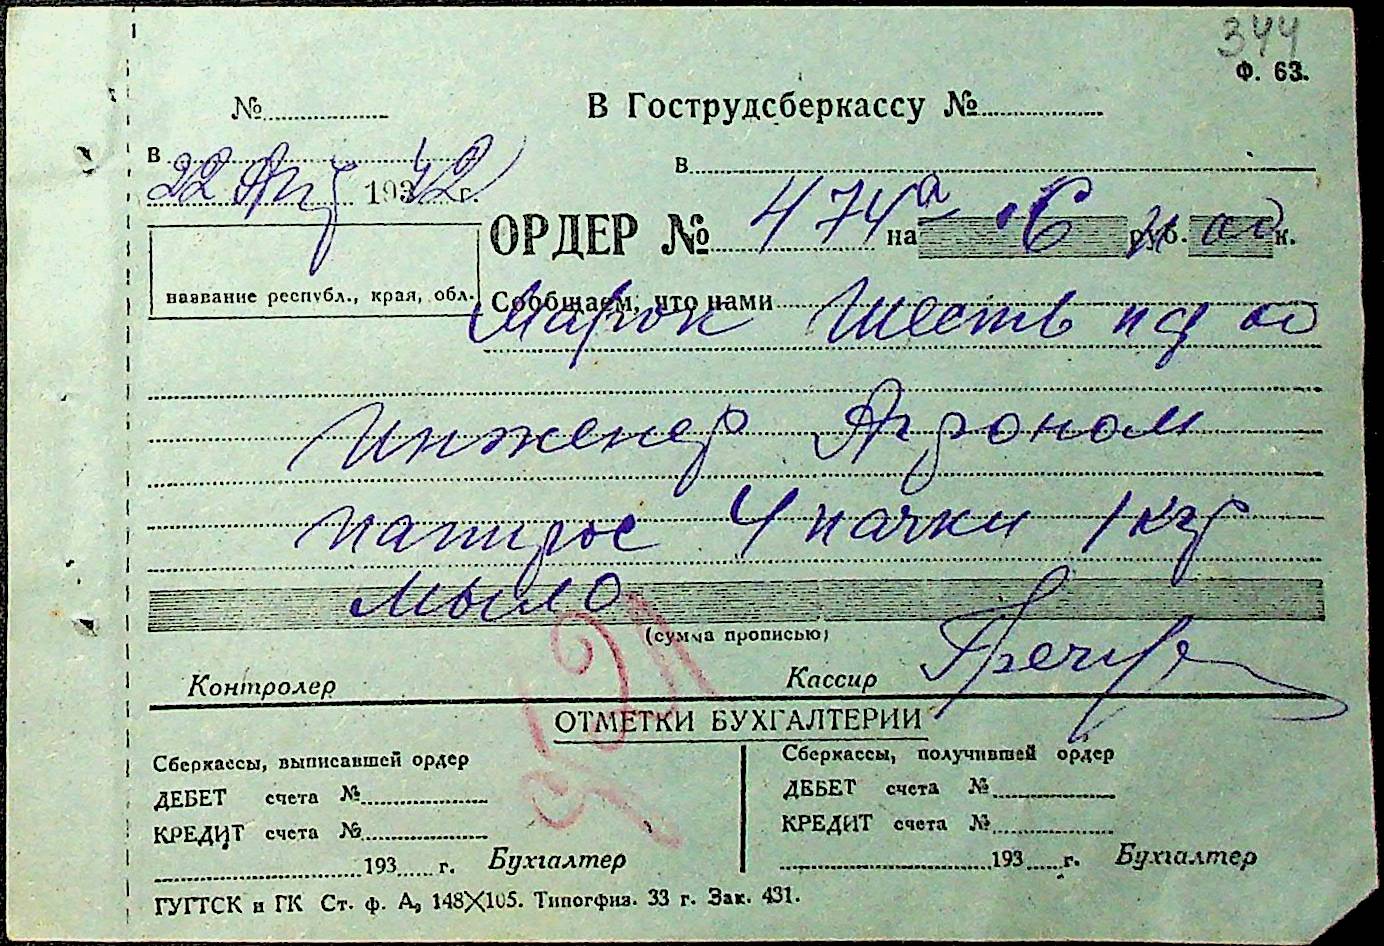 344
Ф. 63.
№ В Гострудсберкассу №
в в
22 Апр 1942 г.
ОРДЕР № 474а на 6 руб. 00 к.
название республ., края, обл. Сообщаем, что нами
Марок Шесть пф 00
Инженер Агроном
папирос 4 пачки 1 кгр
мыло
(сумма прописью)
Контролер Кассир
ОТМЕТКИ БУХГАЛТЕРИИ
Сберкассы, выписавшей ордер Сберкассы, получившей ордер
ДЕБЕТ счета № ДЕБЕТ счета №
КРЕДИТ счета № КРЕДИТ счета №
193 г. Бухгалтер 193 г. Бухгалтер
ГУГТСК и ГК Ст. ф. А, 148X105. Типогфиз. 33 г. Зак. 431.